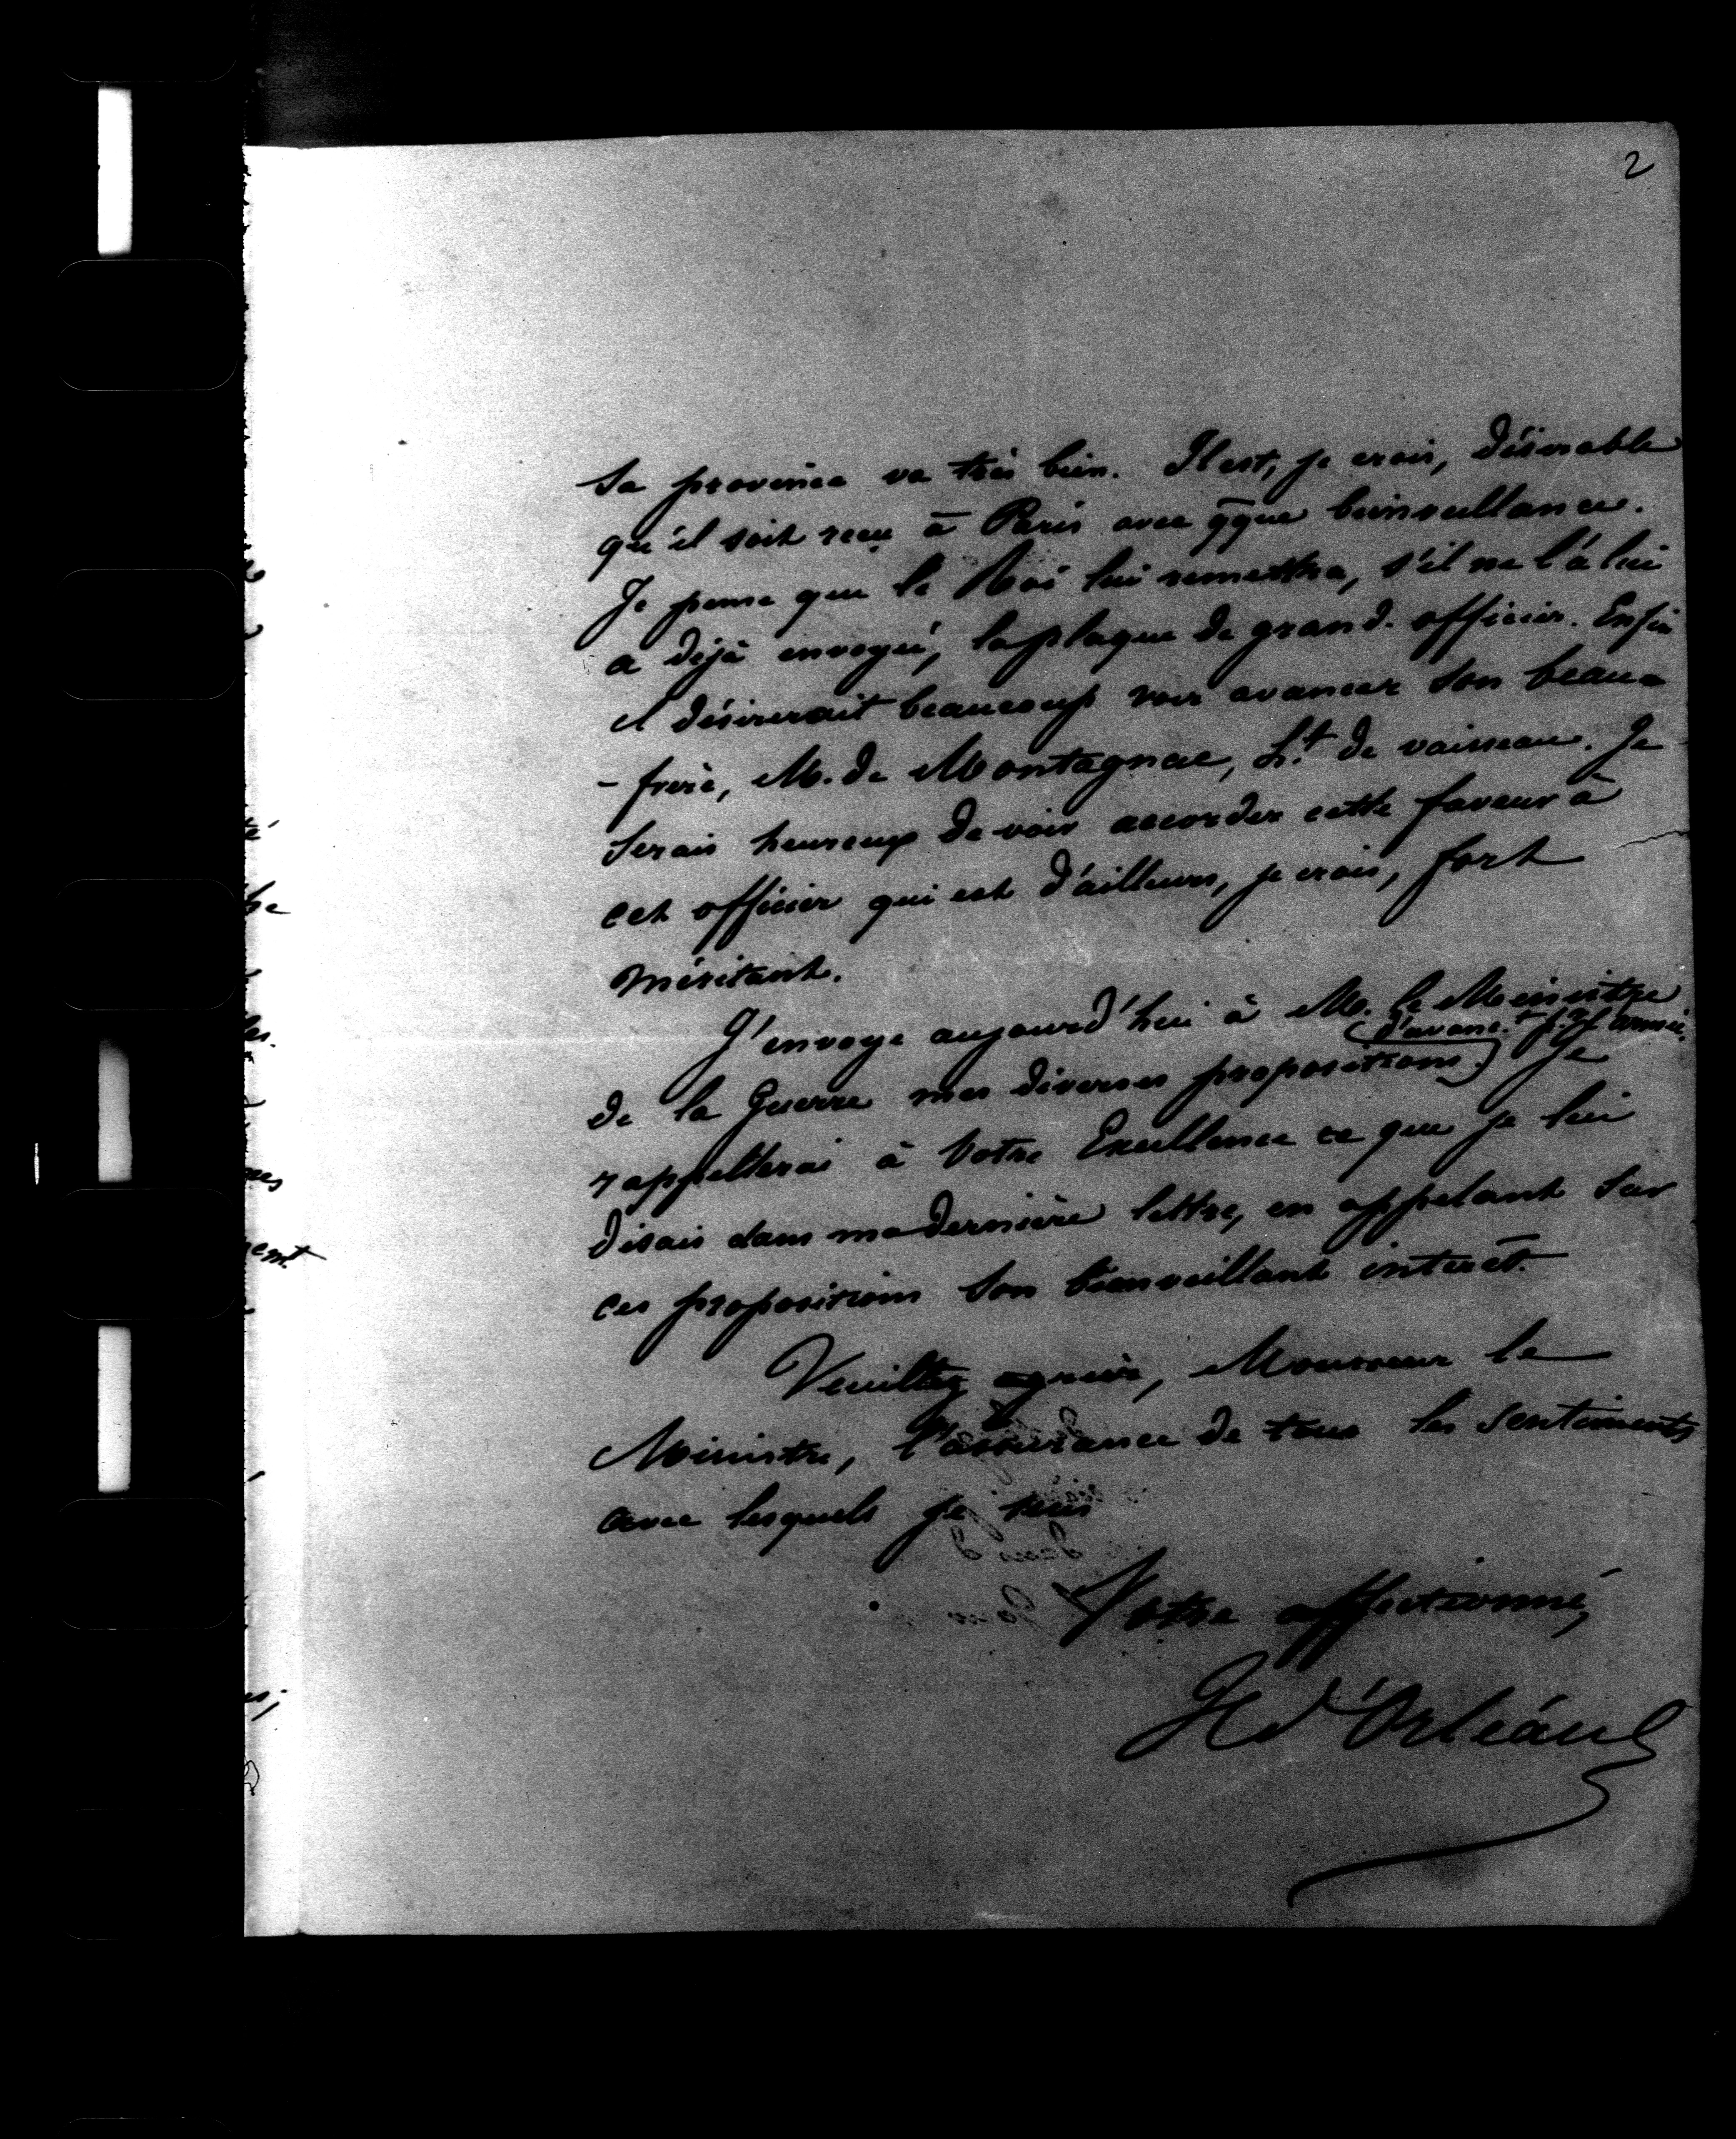 2
Sa province va très bien. Il est, je crois, désirable
qu'il soit reçu à Paris avec qque bienveillance.
Je pense que le Roi lui remettra, s'il ne l'a lui
a déjà envoyé, la plaque de grand-officier. Enfin
il désirerait beaucoup voir avancer son beau-
-frère, M. de Montagnac, Lt. de vaisseau. Je
serais heureux de voir accorder cette faveur à
cet officier qui est d'ailleurs, je crois, fort
méritant.
J'envoye aujourd'hui à M. le Ministre
(d'avanct. pr. l'armée.
de la Guerre mes diverses propositions) Je
rappellerai à Votre Excellence ce que je lui
disais dans ma dernière lettre, en appelant sur
ces propositions son bienveillant intérêt.
Veuillez agréer, Monsieur le
Ministre, l'assurance de tous les sentiments
avec lesquels je suis
Votre affectionné,
H d'Orléans